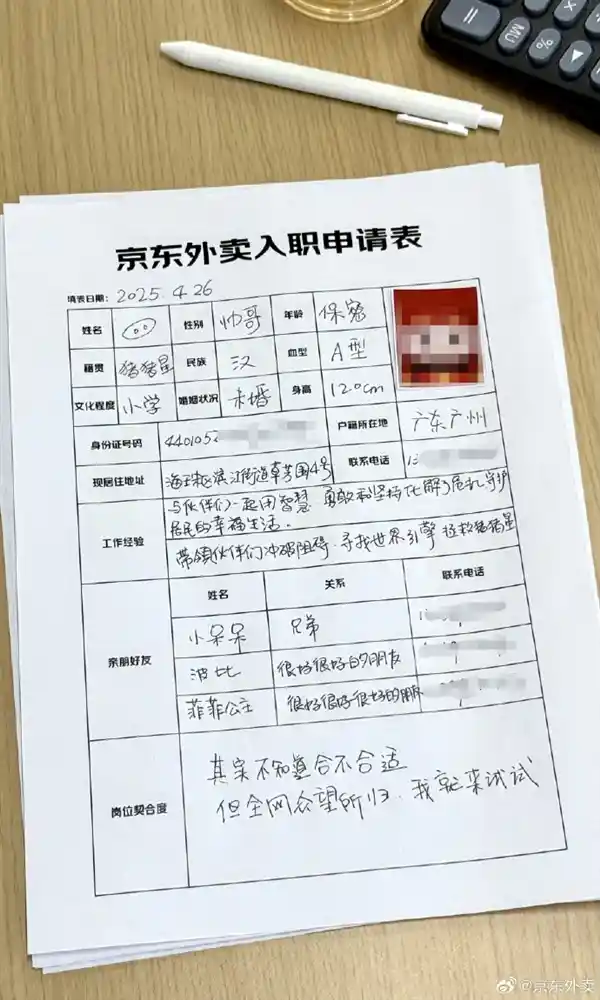 MU
%
京东外卖入职申请表
填表日期: 2025.4.26
姓名 性别 帅哥 年龄 保密
籍贯 猪猪星 民族 汉 血型 A型
文化程度 小学 婚姻状况 未婚 身高 120cm
身份证号码 440105 户籍所在地 广东广州
现居住地址 海珠区滨江街道草芳围4号 联系电话 1
工作经验
与伙伴们一起用智慧、勇敢和坚持化解了危机,守护
居民的幸福生活。
带领伙伴们冲破阻碍、寻找世界引擎 拯救猪猪星
亲朋好友
姓名 关系 联系电话
小呆呆 兄弟 1
波比 很好很好的朋友 1
菲菲公主 很好很好很好的朋
岗位契合度
其实不知道合不合适
但全网众望所归、我就来试试
@京东外卖